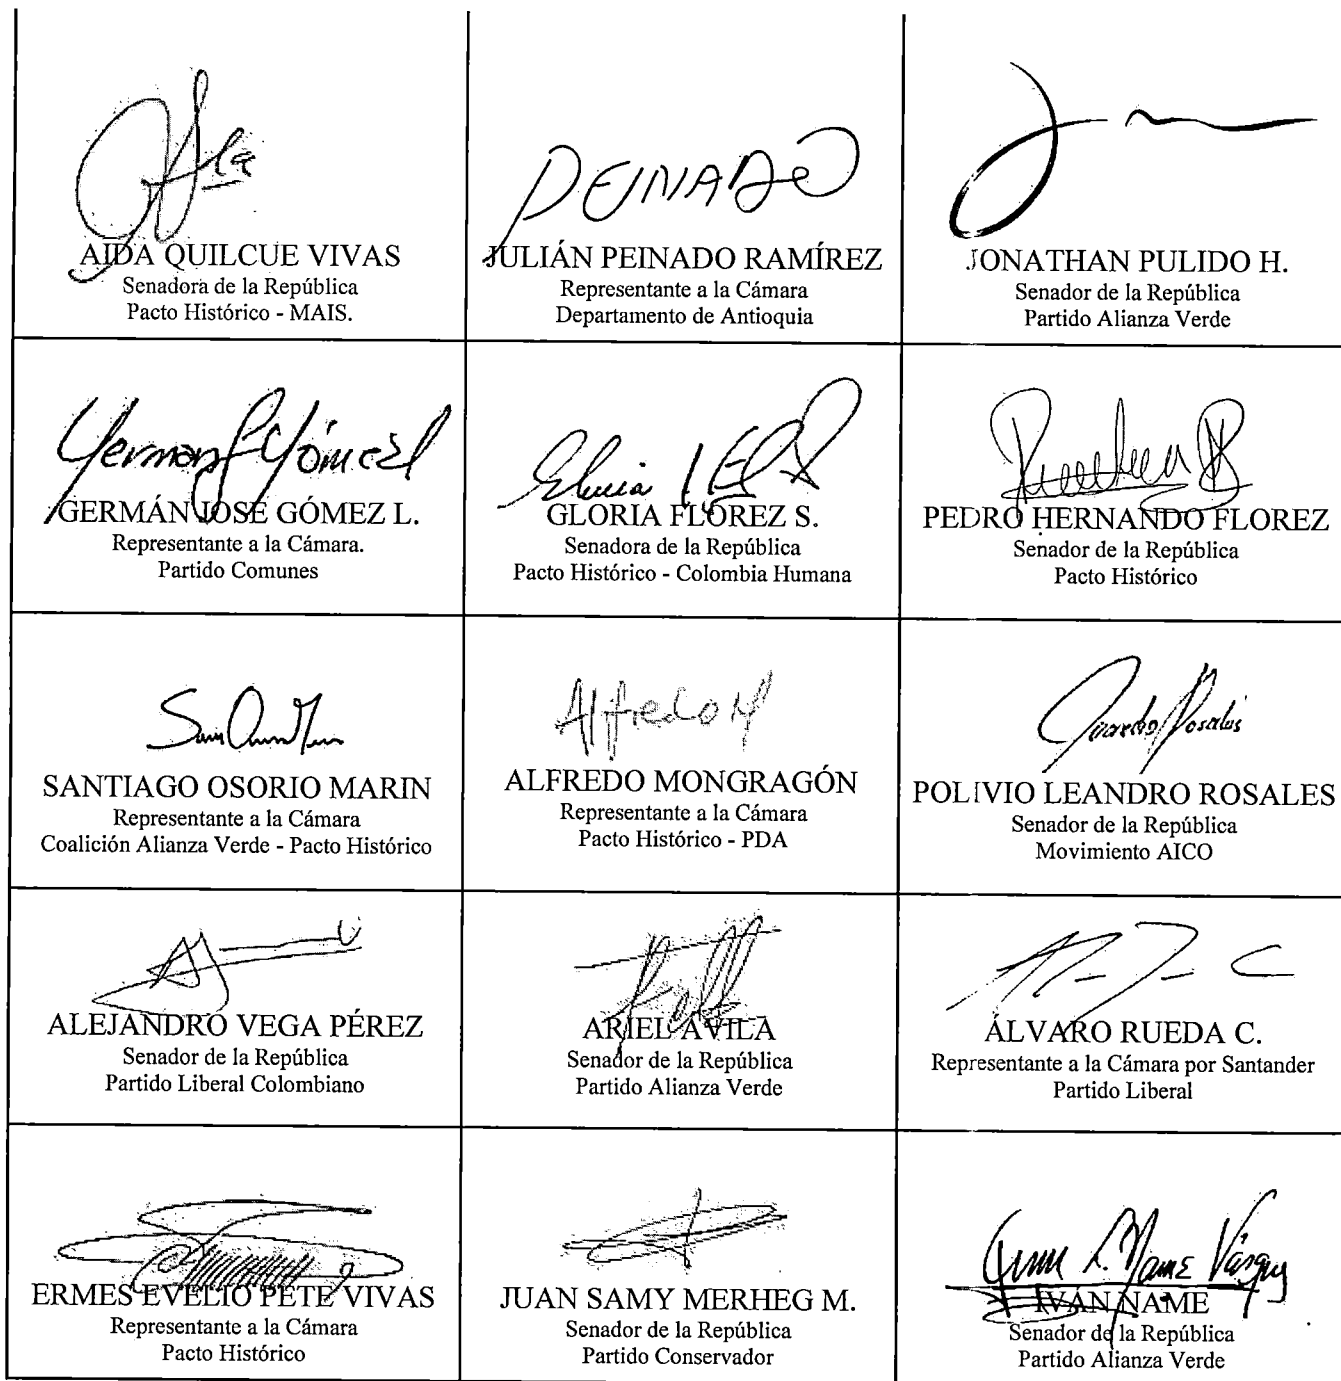 PEINADO
AIDA QUILCUE VIVAS
Senadora de la República
Pacto Histórico - MAIS.
JULIÁN PEINADO RAMÍREZ
Representante a la Cámara
Departamento de Antioquia
JONATHAN PULIDO H.
Senador de la República
Partido Alianza Verde
German Gómez
GERMÁN JOSÉ GÓMEZ L.
Representante a la Cámara.
Partido Comunes
GLORIA FLÓREZ S.
Senadora de la República
Pacto Histórico - Colombia Humana
PEDRO HERNANDO FLOREZ
Senador de la República
Pacto Histórico
SANTIAGO OSORIO MARIN
Representante a la Cámara
Coalición Alianza Verde - Pacto Histórico
Alfredo M
ALFREDO MONGRAGÓN
Representante a la Cámara
Pacto Histórico - PDA
Rosales
POLIVIO LEANDRO ROSALES
Senador de la República
Movimiento AICO
ALEJANDRO VEGA PÉREZ
Senador de la República
Partido Liberal Colombiano
ARIEL ÁVILA
Senador de la República
Partido Alianza Verde
ÁLVARO RUEDA C.
Representante a la Cámara por Santander
Partido Liberal
ERMES EVELIO PETE VIVAS
Representante a la Cámara
Pacto Histórico
JUAN SAMY MERHEG M.
Senador de la República
Partido Conservador
L. Name Vásquez
IVÁN NAME
Senador de la República
Partido Alianza Verde